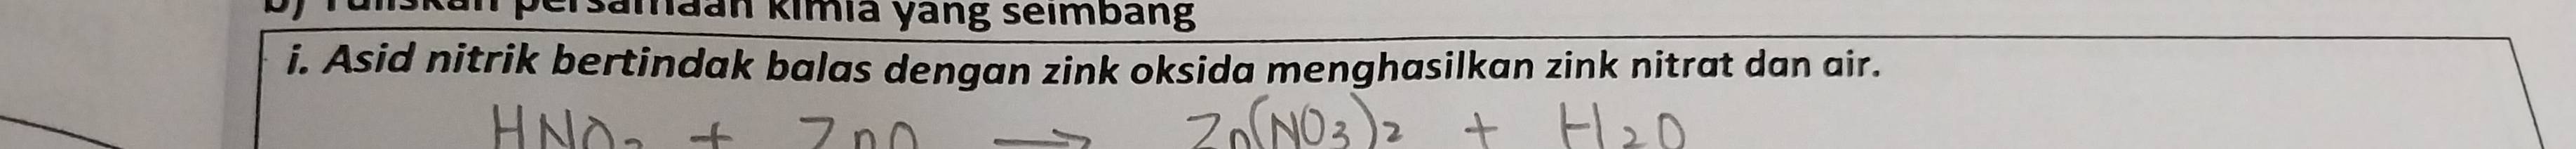 b) Tuliskan persamaan kimia yang seimbang
i. Asid nitrik bertindak balas dengan zink oksida menghasilkan zink nitrat dan air.
HNO₃ + ZnO → Zn(NO₃)₂ + H₂O